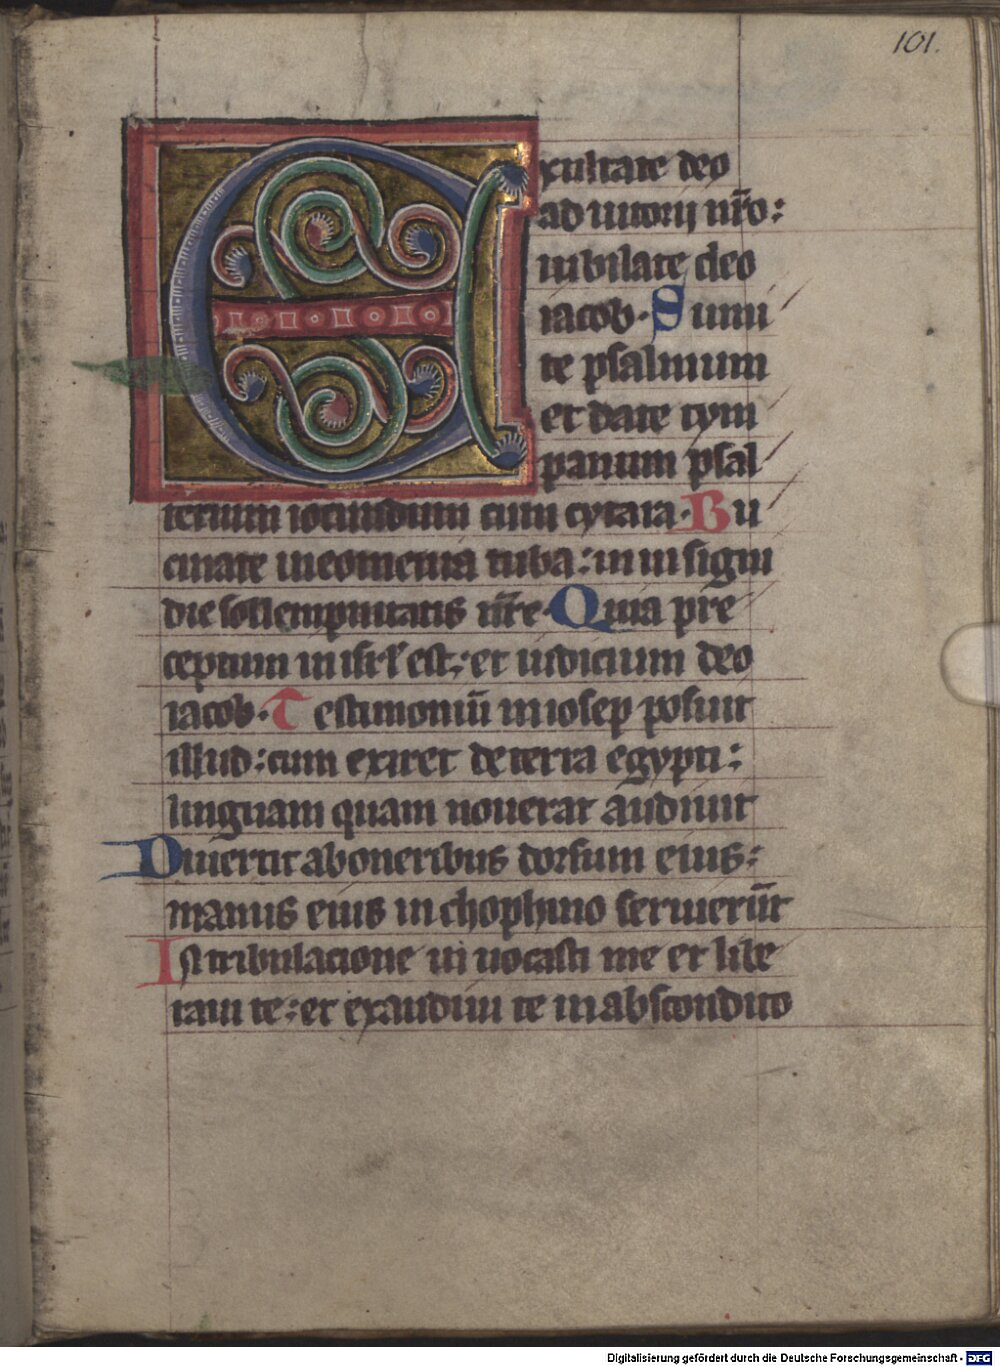 101.
Exultate deo
adiutori nr̄o:
iubilate deo
iacob. Sumi
te psalmum
et date tym
panum psal
terium iocundum cum cytara. Bu
cinate in neomenia tuba: in insigni
die sollempnitatis nr̄e. Quia pre
ceptum in isrl̄ est: et iudicium deo
iacob. Testimoniū in iosep posuit
illud: cum exiret de terra egypti:
linguam quam nouerat audiuit
Diuertit ab oneribus dorsum eius:
manus eius in chophino seruierūt
In tribulacione inuocasti me et libe
raui te: et exaudiui te in abscondito
Digitalisierung gefördert durch die Deutsche Forschungsgemeinschaft - DFG